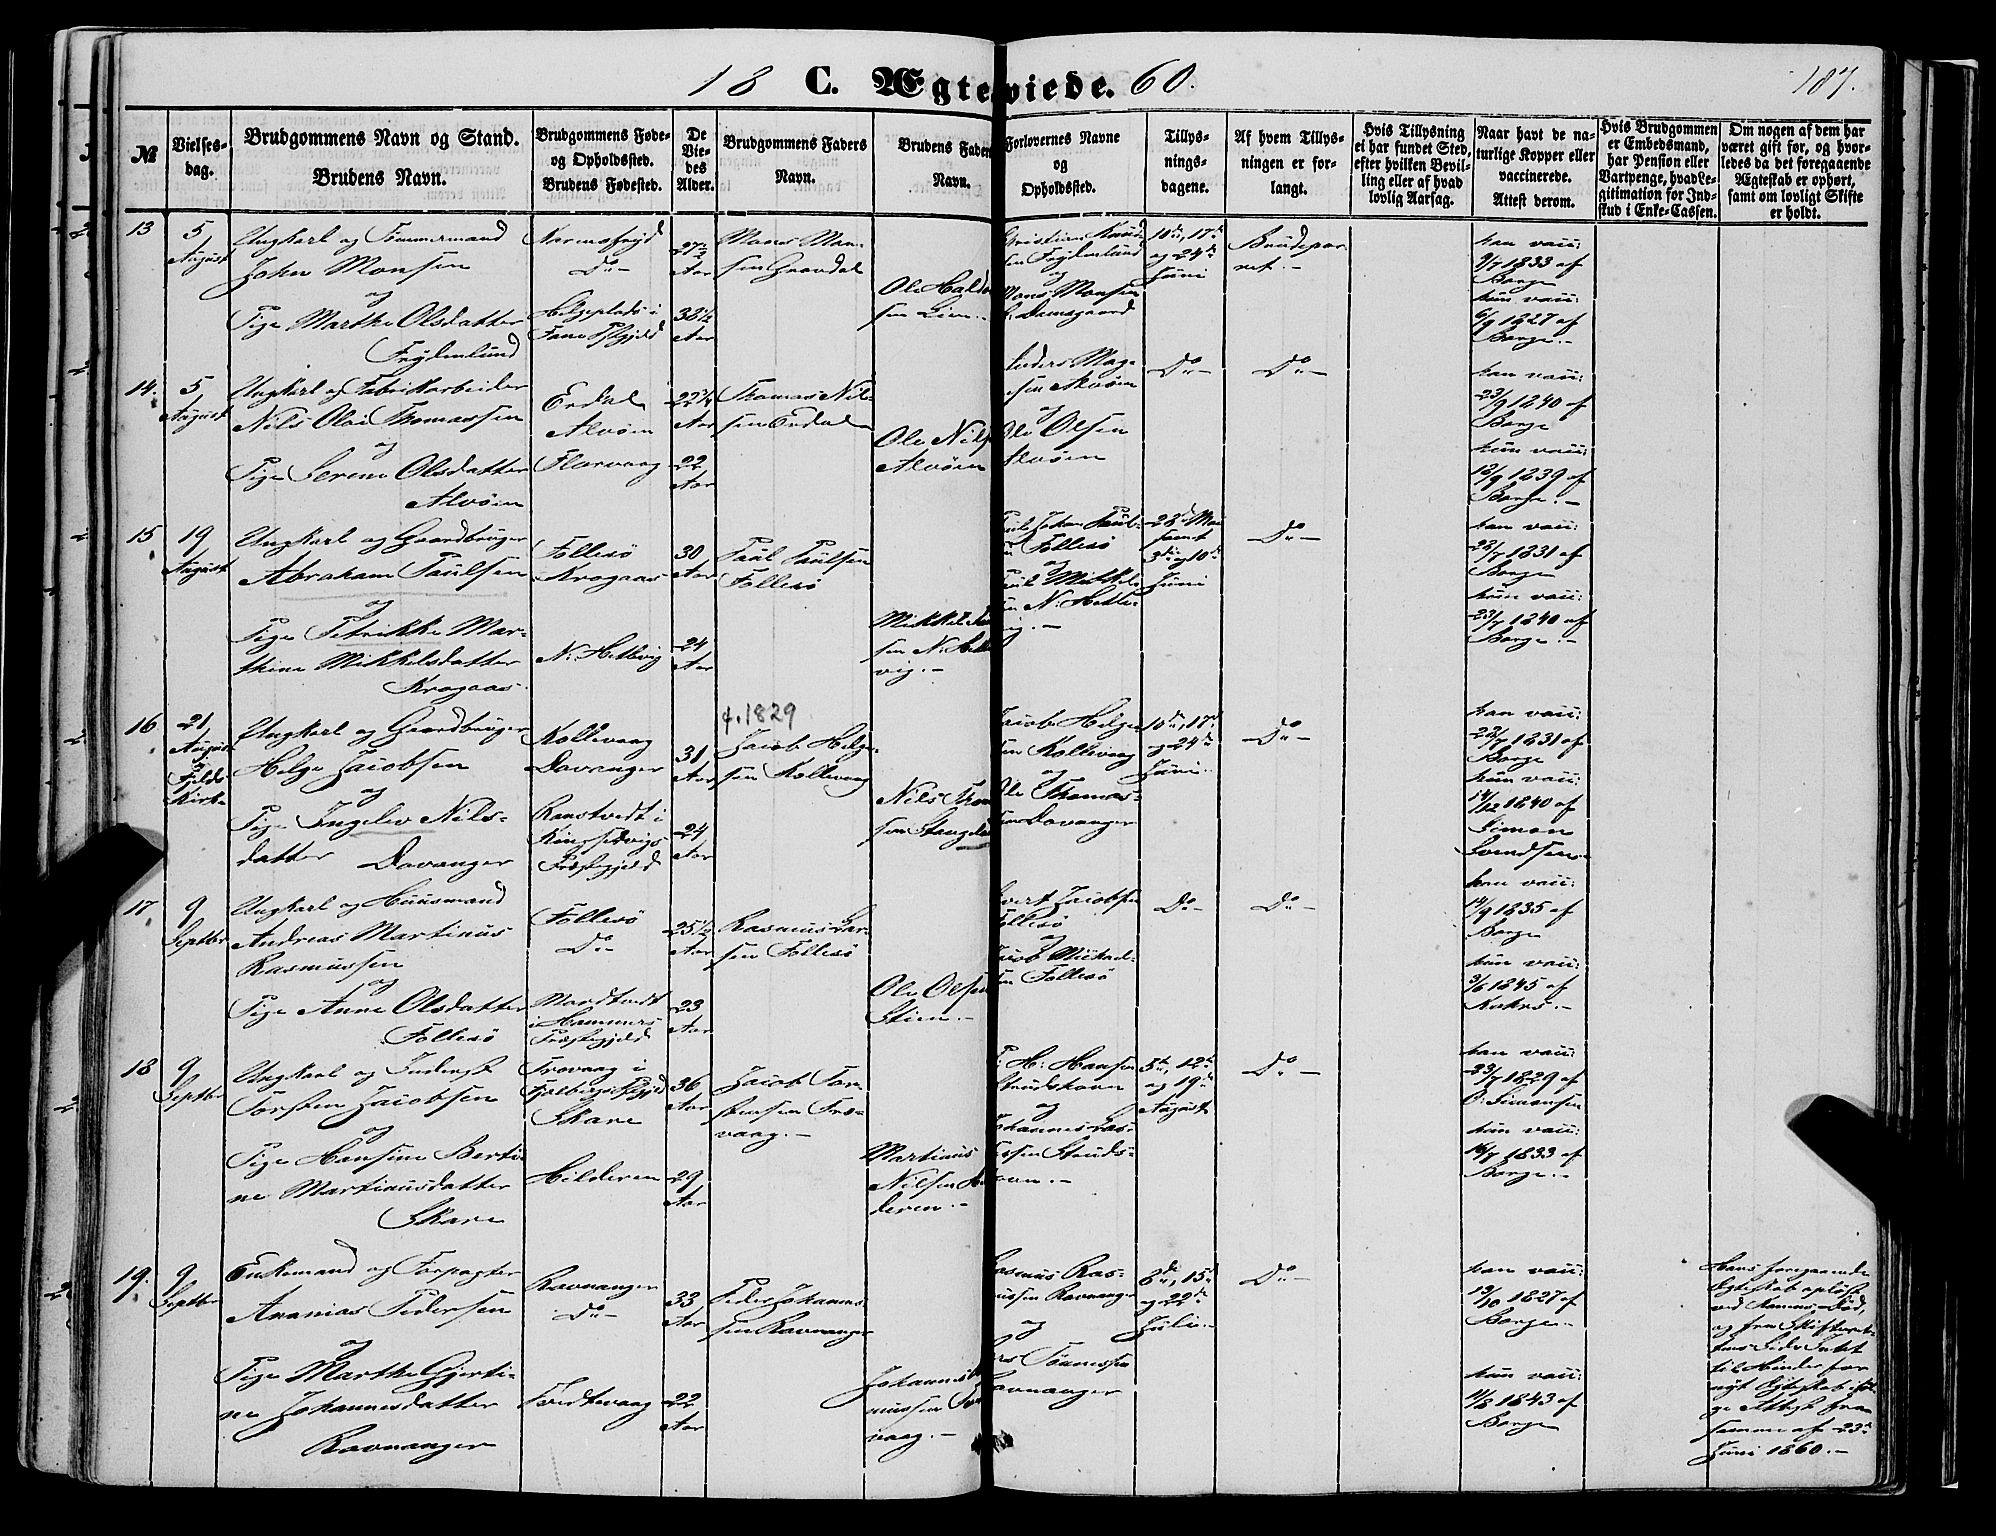 18 C. Ægteviede. 60.
187.
№
Vielses-
dag.
Brudgommens Navn og Stand.
Brudens Navn.
Brudgommens Føde-
og Opholdssted.
Brudens Fødested.
De
Vie-
des
Alder.
Brudgommens Faders
Navn.
Brudens Faders
Navn.
Forlovernes Navne
og
Opholdssted.
Tillys-
nings-
dagene.
Af hvem Tillys-
ningen er for-
langt.
Hvis Tillysning
ei har fundet Sted,
efter hvilken Bevil-
ling eller af hvad
lovlig Aarsag.
Naar havt de na-
turlige Kopper eller
vaccinerede.
Attest derom.
Hvis Brudgommen
er Embedsmand,
har Pension eller
Vartpenge, hvad Le-
gitimation for Ind-
skud i Enke-Cassen.
Om nogen af dem har
været gift før, og hvor-
ledes da det foregaaende
Ægteskab er ophørt,
samt om lovligt Skifte
er holdt.
13
5
August
Ungkarl og Tømmermand
John Monsen
og
Pige Marthe Olsdatter
Frydenlund
Do
i
Fane Pstgjeld
27½
Aar
32½
Aar
Mons Mon-
sen Gravdal
Ole Hald
sen Lien.
og
Mons Monsen
Damsgaard
10de, 17de
og 24de
Juni
Brudepar-
ret.
han vacc:
9/7 1833 af
Borge
hun vacc:
6/9 1827 af
Borge.
14.
5
August
Ungkarl og Fabrikarbeider
Nils Olai Thomassen
og
Pige Serine Olsdatter
Alvøen
Erdal
Alvøen
Florvaag
22¼
Aar
22
Aar
Thomas Nil-
sen Erdal
Ole Nils
Alvøen
sen Alvøen
og
Ole Olsen
Alvøen
Do
Do
han vacc:
23/9 1840 af
Borge
hun vacc:
12/9 1839 af
Borge.
15
19
August
Ungkarl og Gaardbruger
Abraham Paulsen
og
Pige Petrikke Mar-
thine Mikkelsdatter
Krogaas
Follesø
Krogaas
N: Hetlevig
30
Aar
24
Aar
Paul Paulsen
Follesø
Mikkel
sen N: Hetle
vig.
Johan Paul-
Follesø
og
Mikkel-
sen N: Hetle-
vig.
28de Mai
samt
3die og 10de
Juni
Do
han vacc:
22/7 1831 af
Borge
hun vacc:
23/7 1840 af
Borge.
16
21
August
i
Fjelds
Kirke
Ungkarl og Gaardbruger
Helge Jacobsen
og
Pige Ingelev Nils-
datter Davanger
Kollevaag
Davanger
i
Præstegjeld
31
Aar
24
Aar
f. 1829
Jacob Helge-
sen Kollevaag
Nils
Jacob Helge-
sen Kollevaag
og
Ole Thomas-
sen Davanger
10de, 17de
og 24de
Juni.
Do
han vacc:
22/7 1831 af
Borge
hun vacc:
14/12 1840 af
Simon
Svendsen
17.
9
Septbr
Ungkarl og Huusmand
Andreas Martinus
Rasmussen
og
Pige Anne Olsdatter
Follesø
Follesø
Do
Mandtvedt
i Hammers
Præstegjeld
25½
Aar
23
Aar
Rasmus Lar-
sen Follesø
Ole Olsen
Stien.
Jacobsen
Follesø
og
Jacob Michael-
sen Follesø
Do
Do
han vacc:
14/9 1835 af
Borge
hun vacc:
3/6 1845 af
18
9
Septbr
Ungkarl og Inderst
Torsten Jacobsen
og
Pige Hansine Berti-
ne Martinusdatter
Skare
Trovaag i
Fjelbergs Pstgjeld
Skare
Hilderen
36
Aar
29
Aar
Jacob Tor-
stensen Tro-
vaag.
Martinus
Nilsen Hil
deren.
H: Hansen
Strudshavn
og
Johannes Las-
sesen Struds-
havn.
5te, 12te
og 19de
August
Do
han vacc:
23/7 1829 af
O: Simonsen
hun vacc:
16/7 1833 af
Borge.
19.
9
Septbr
Enkemand og Forpagter
Ananias Pedersen
og
Pige Marthe Gjerti-
ne Johannesdatter
Ravnanger
Ravnanger
Do
Tvedtevaag
33
Aar
22
Aar
Peder Johannes-
sen Ravnanger
Johannes
vaag.
Rasmus Ras-
mussen Ravnanger
og
Tønnessen
Ravnanger
8de, 15de
og 22de
Juli.
Do
han vacc:
13/10 1827 af
Borge.
hun vacc:
11/8 1843 af
Borge
Hans foregaaende
Egteskab opløst
ved Konens Død,
og fra Skifteret-
tens Side Intet
til Hinder for
nyt Egteskab iføl-
ge Attest fra
samme af 23de
Juni 1860.